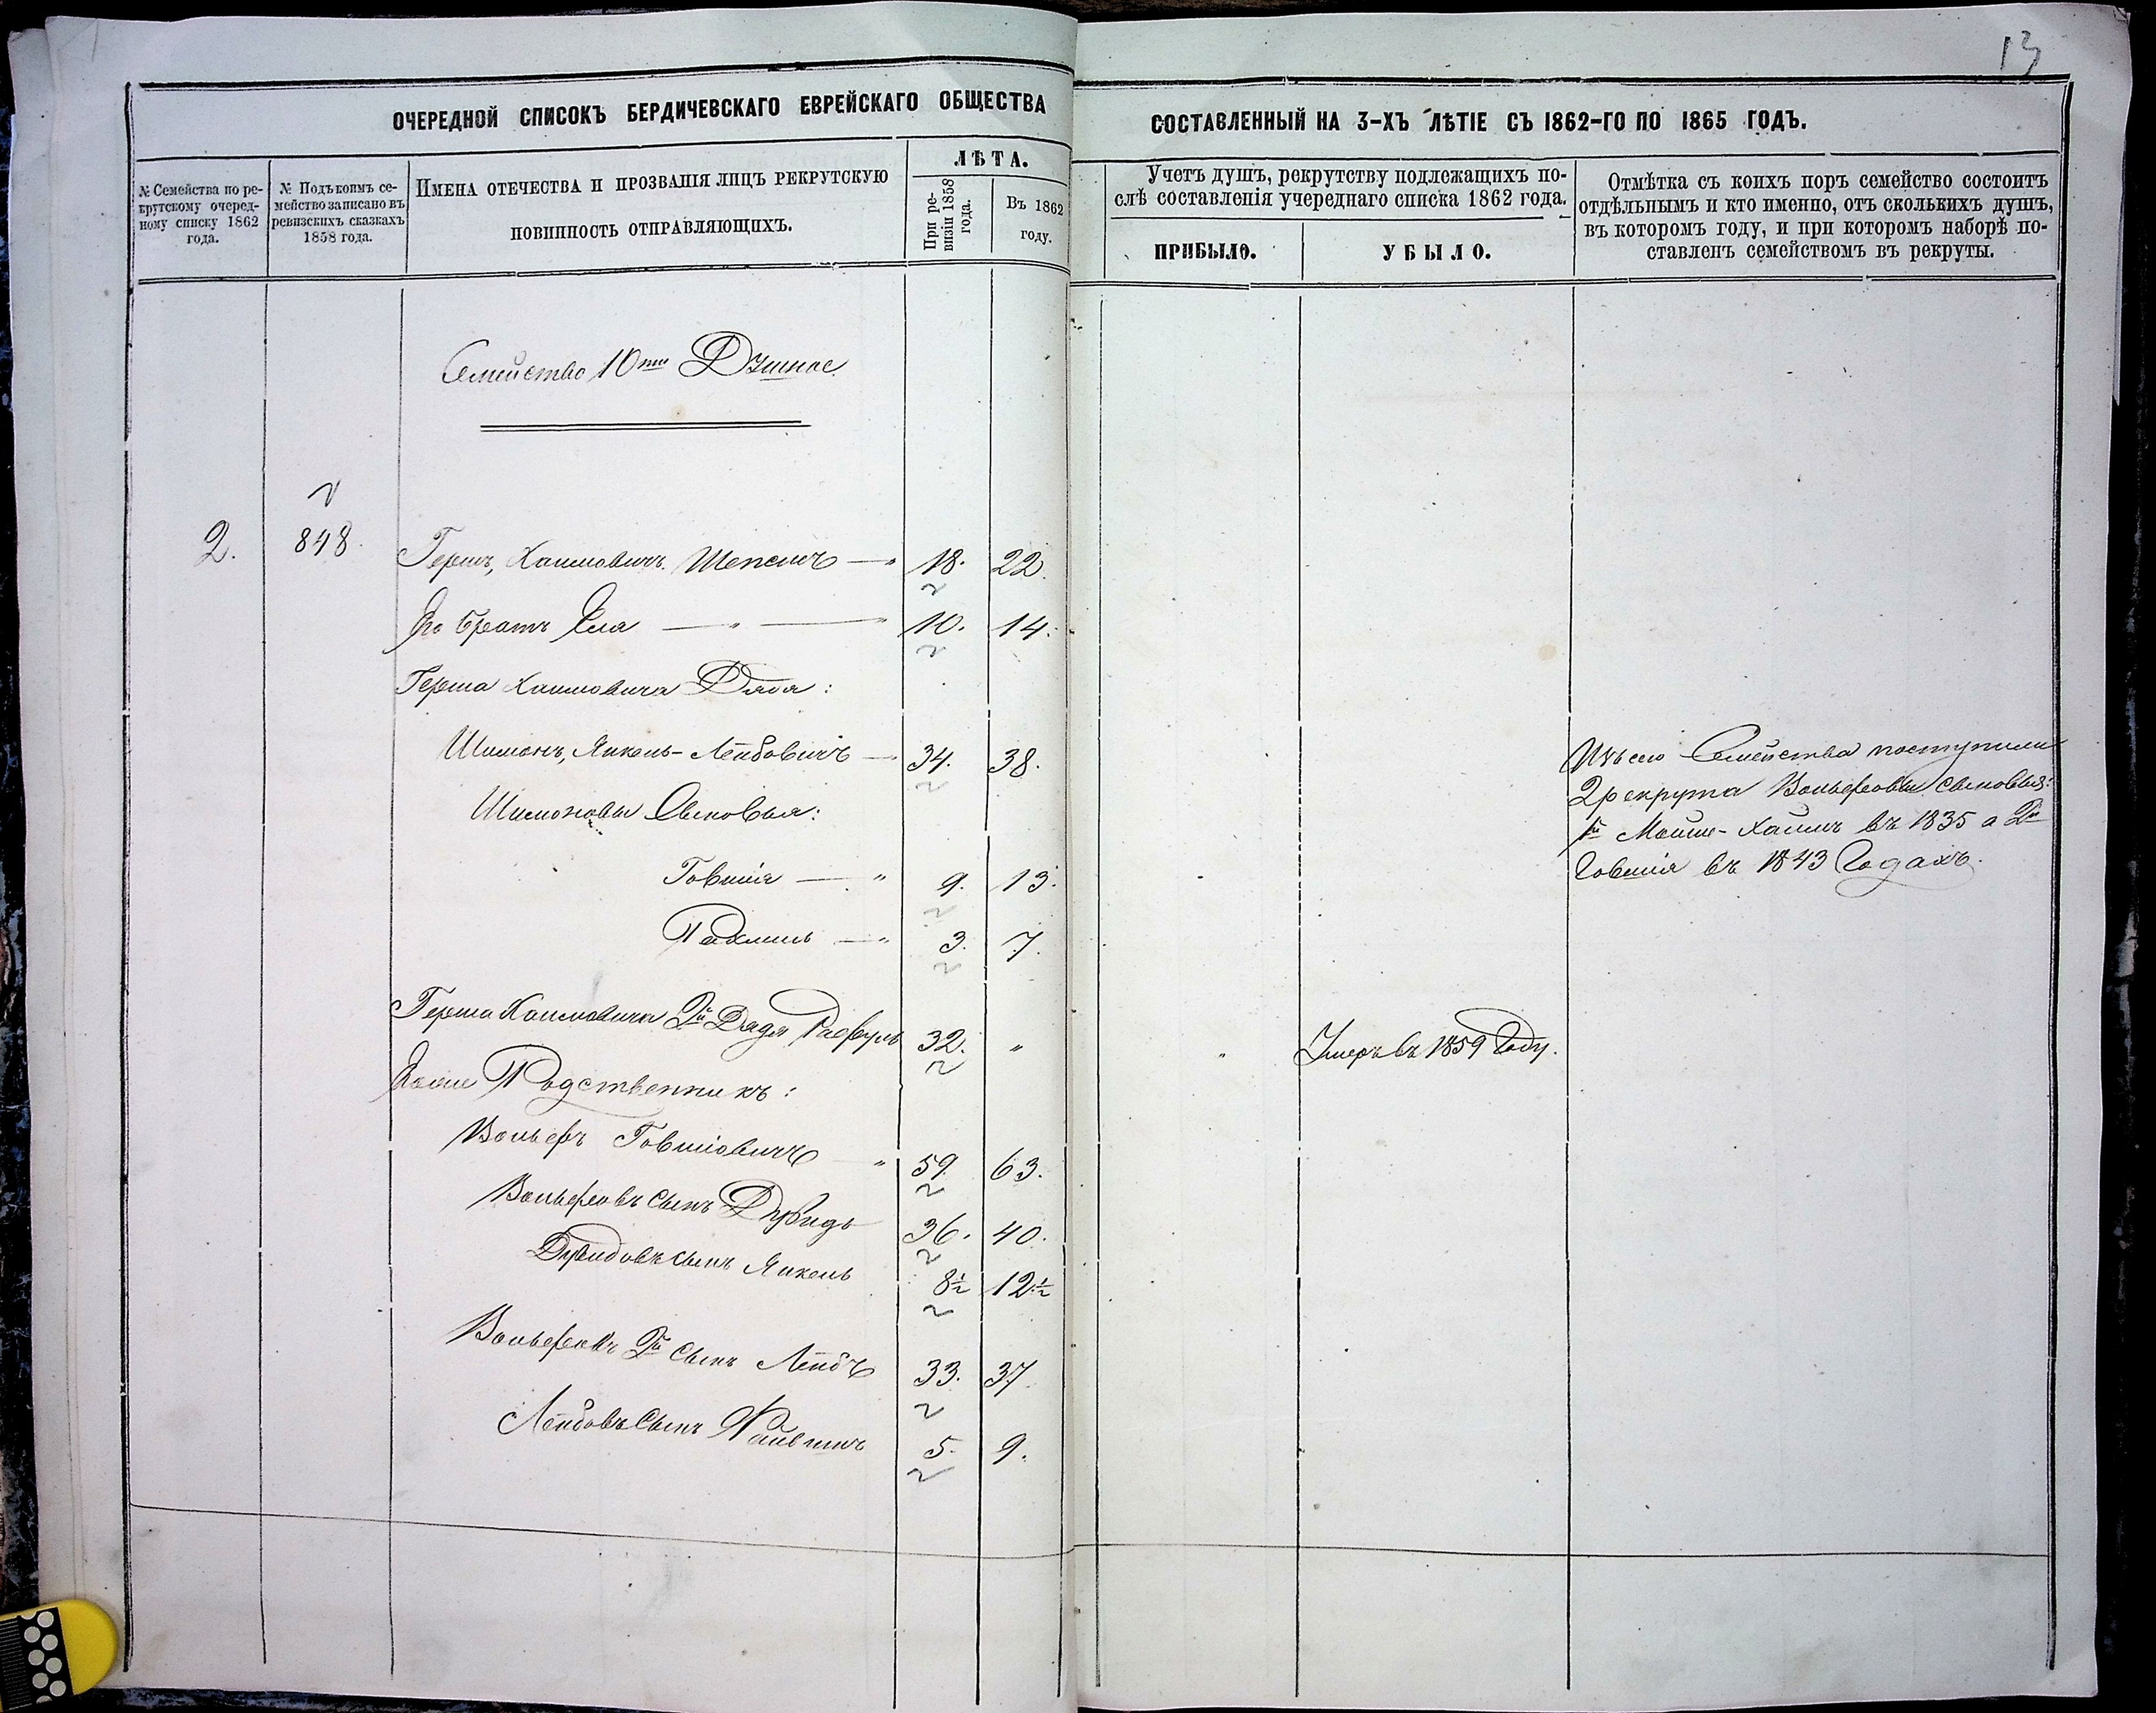 13
ОЧЕРЕДНОЙ СПИСОКЪ БЕРДИЧЕВСКАГО ЕВРЕЙСКАГО ОБЩЕСТВА
СОСТАВЛЕННЫЙ НА 3-ХЪ ЛѢТІЕ СЪ 1862-ГО ПО 1865 ГОДЪ.
№ Семейства по ре-
крутскому очеред-
ному списку 1862
года.
№ Подъ коимъ се-
мейство записано въ
ревизскихъ сказкахъ
1858 года.
ИМЕНА ОТЕЧЕСТВА И ПРОЗВАНІЯ ЛИЦЪ РЕКРУТСКУЮ
ПОВИННОСТЬ ОТПРАВЛЯЮЩИХЪ.
ЛѢТА.
При ре-
визіи 1858
года.
Въ 1862
году.
Учетъ душъ, рекрутству подлежащихъ по-
слѣ составленія учереднаго списка 1862 года.
ПРИБЫЛО.
УБЫЛО.
Отмѣтка съ коихъ поръ семейство состоитъ
отдѣльнымъ и кто именно, отъ сколькихъ душъ,
въ которомъ году, и при которомъ наборѣ по-
ставленъ семействомъ въ рекруты.
Семейство 10ти
2. 848. Гершъ, Хаимовичъ. Шепсисъ — 18. 22.
Его братъ — 10. 14.
Герша Хаимовича Дядя:
Шимонъ, Янкель-Лейбовичъ — 34. 38.
Шимоновы Сыновья:
Говшія — " 9. 13.
— " 3. 7.
Герша Хаимовича 2й Дядя Рафуль 32. " " Умеръ въ 1859 Году.
Родственникъ:
Вольфъ Говшіовичъ " 59. 63.
Вольфовъ сынъ Дувидъ 36. 40.
Дувидовъ сынъ Янкель 8½ 12½
Вольфовъ 2й Сынъ Лейбъ 33. 37.
Лейбовъ Сынъ 5. 9.
Изъ сего Семейства поступили
2 рекрута Вольфовы сыновья:
1й Мойше-Хаимъ въ 1835 а 2й
Говшія въ 1843 Годахъ.